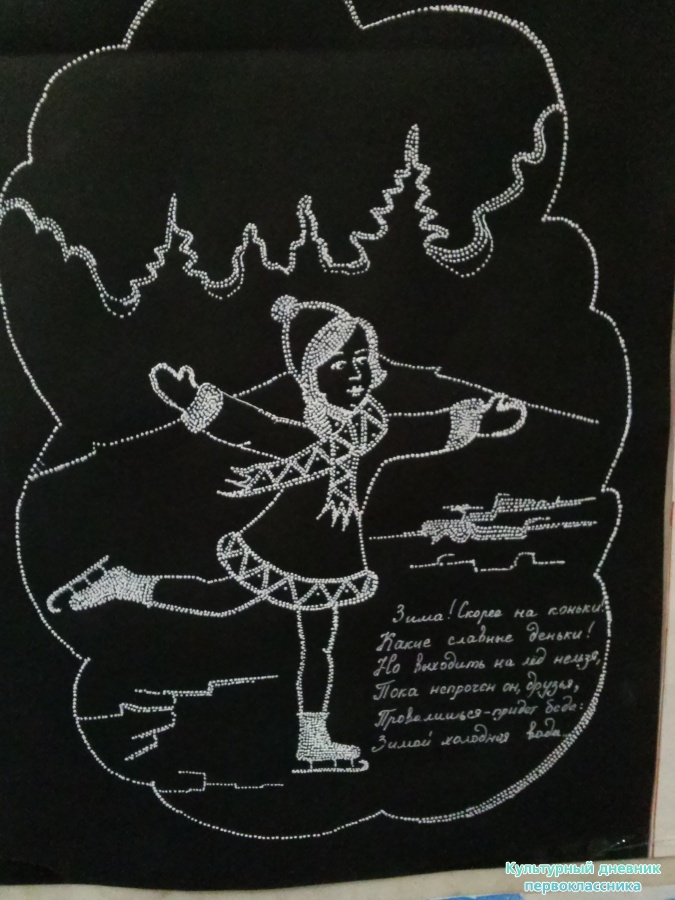 Зима! Скорее на коньки!
Какие славные деньки!
Но выходить на лёд нельзя,
Пока непрочен он, друзья,
Провалишься - придёт беда:
Зимой холодная вода.
Культурный дневник
первоклассника